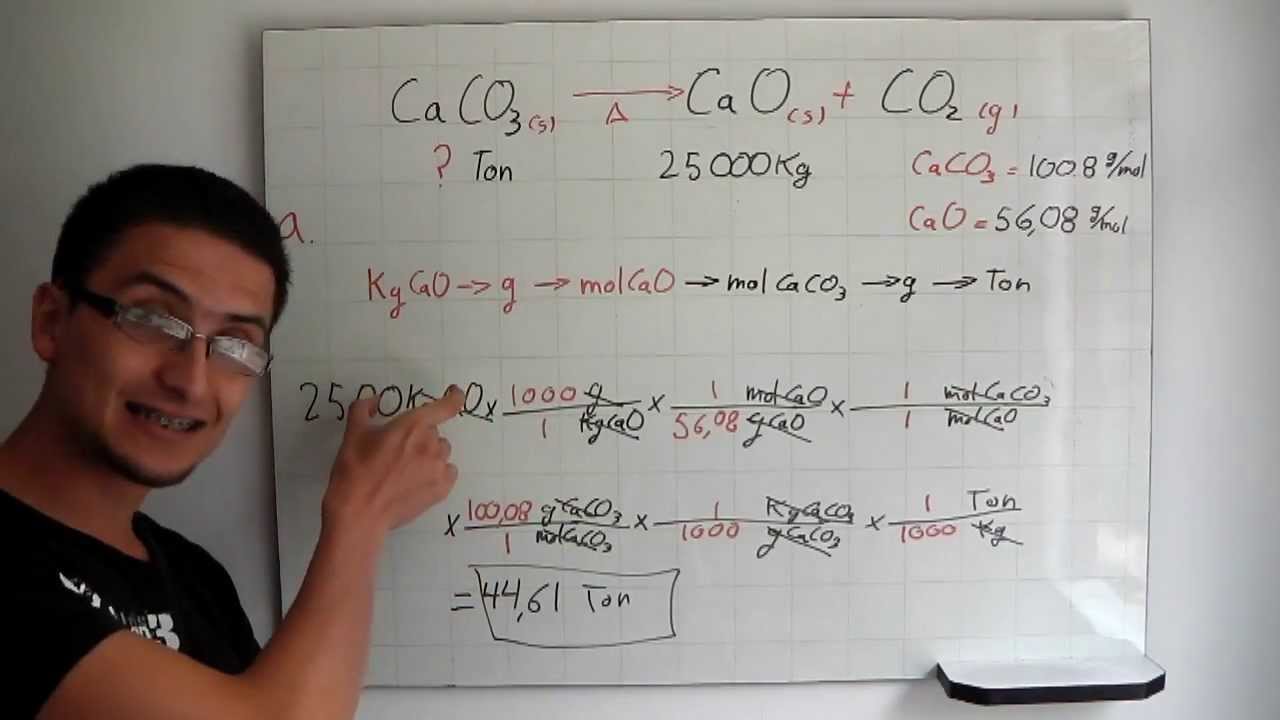 CaCO₃(s) →Δ CaO(s) + CO₂ (g)
? Ton 25000Kg CaCO₃ = 100.8 g/mol
CaO = 56,08 g/mol
a.
KgCaO → g → molCaO → molCaCO₃ → g → Ton
x 1000 g / 1 KgCaO x 1 molCaO / 56,08 gCaO x 1 molCaCO₃ / 1 molCaO
x 100,08 gCaCO₃ / 1 molCaCO₃ x 1 KgCaCO₃ / 1000 gCaCO₃ x 1 Ton / 1000 Kg
= 44,61 Ton